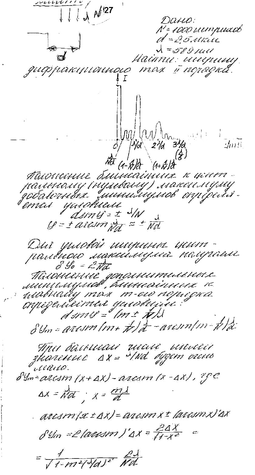 №27
Дано:
N = 1000 штрихов
d = 2,5 мкм
λ = 589 нм
Найти: ширину
дифракционного max II порядка.
I
0 λ/d 2λ/d 3λ/d
Положение ближайших к цент-
ральному (нулевому) максимуму
добавочных минимумов определя-
ется условием
d sinφ = ± λ/N
φ = ± arcsin λ/Nd = ± λ/Nd
Для угловой ширины цент-
рального максимума получаем
δφ₀ = 2λ/Nd
Положение дополнительных
минимумов, ближайших к
главному max m-ого порядка
определяется условием:
d sinφ = (m ± 1/N)λ
δφm = arcsin(m + 1/N)λ/d - arcsin(m - 1/N)λ/d
При большом числе щелей
значение Δx = λ/Nd будет очень
мало.
δφm = arcsin(x + Δx) - arcsin(x - Δx), где
Δx = λ/Nd ; x = mλ/d
arcsin(x ± Δx) = arcsin x ± (arcsin x)'Δx
δφm = 2(arcsin x)'Δx = 2Δx/√(1-x²) =
= 1/√(1-m²(λ/d)²) · 2λ/Nd